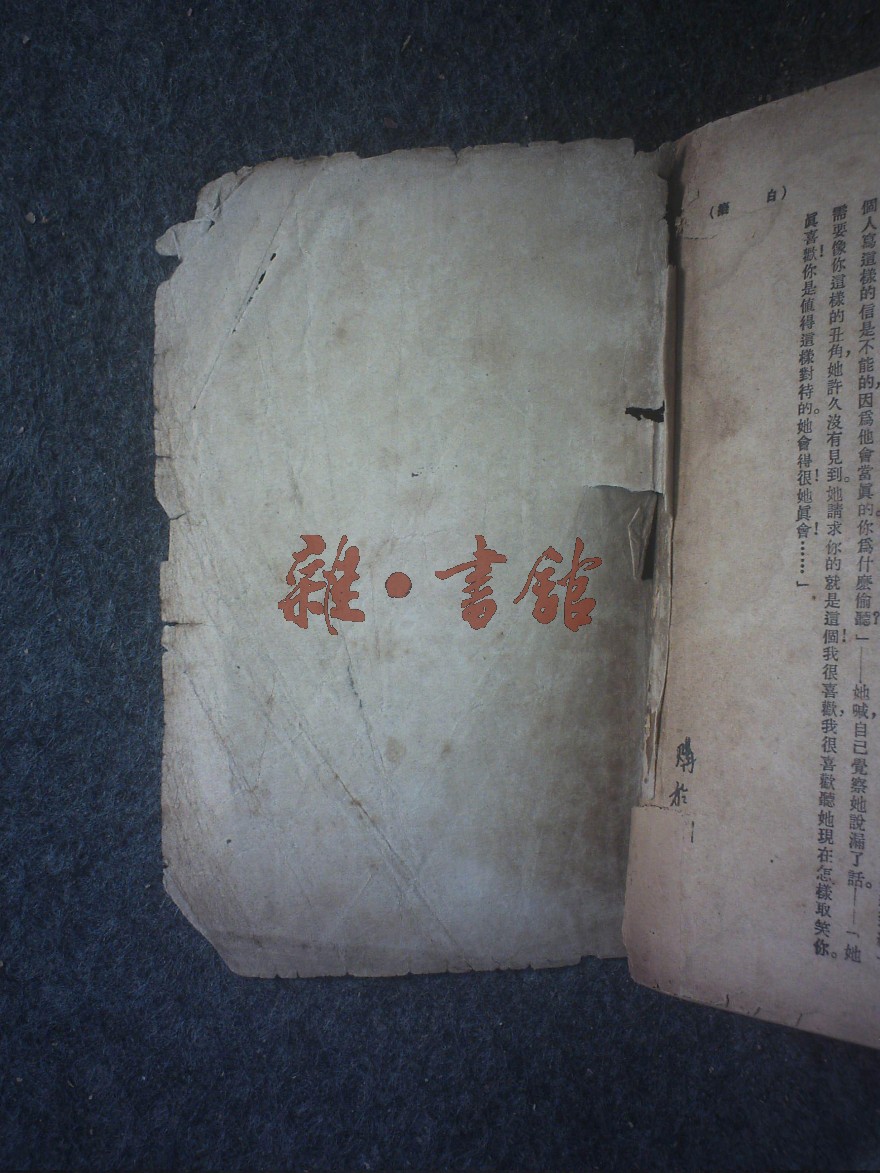 (白　癡)
個人寫這樣的信是不能的,因爲他會當眞的。你爲什麽偷聽?」——她喊,自己覺察她說漏了話。——「她
需要像你這樣的丑角,她許久沒有見到。她請求你的就是這個!我很喜歡,我很喜歡聽她現在怎樣取笑你。
眞喜歡!你是値得這樣對待的。她會得很!她眞會!……」
購於
雜·書館